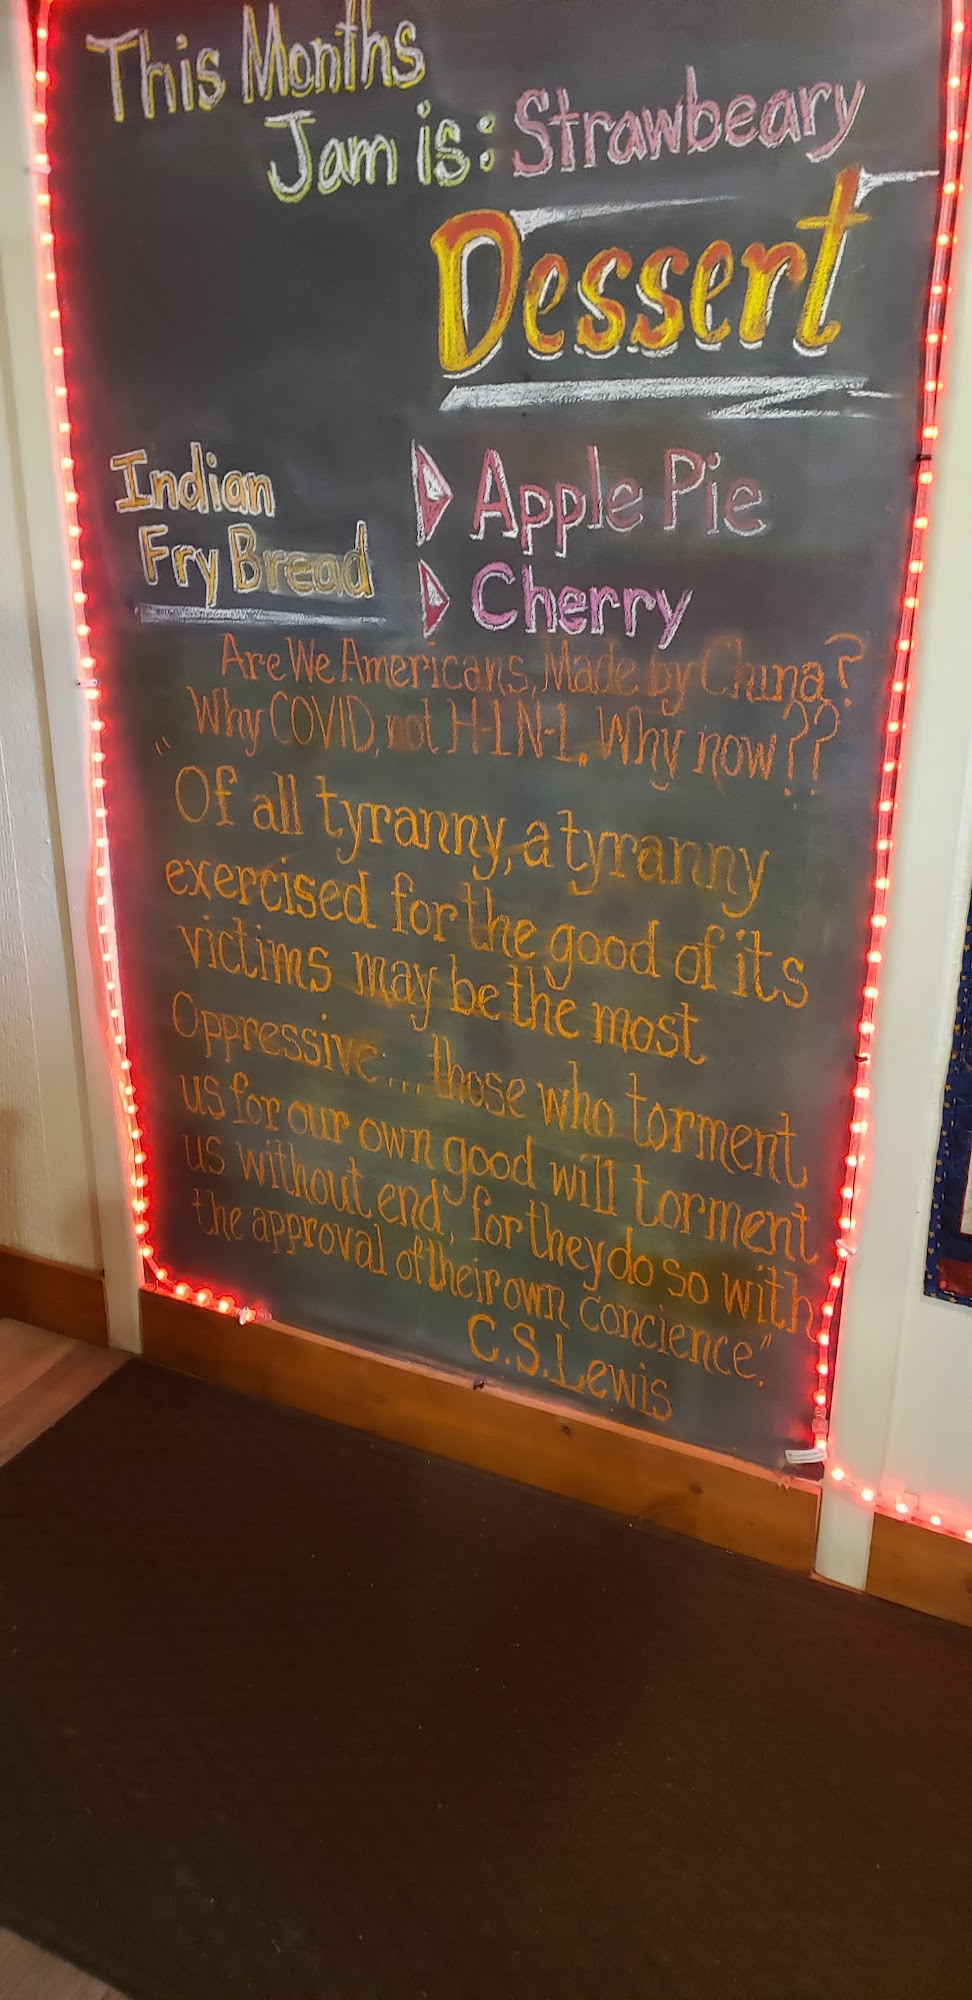 This Months
Jam is: Strawbeary
Dessert
Indian
Fry Bread
Apple Pie
Cherry
Are We Americans, Made by China?
Why COVID, not H-1N-1, Why now??
"Of all tyranny, a tyranny
exercised for the good of its
victims may be the most
Oppressive... those who torment
us for our own good will torment
us without end, for they do so with
the approval of their own concience".
C.S. Lewis